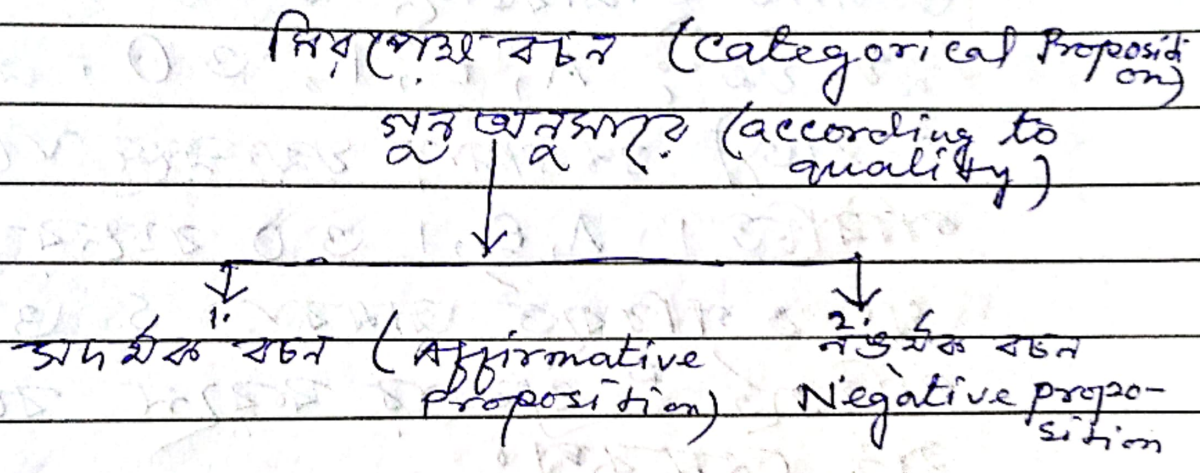 নিরপেক্ষ বচন (Categorical Proposition)
গুন অনুসারে (according to quality)
1. 2.
সদর্থক বচন (Affirmative নঙর্থক বচন
Proposition) Negative propo-
sition